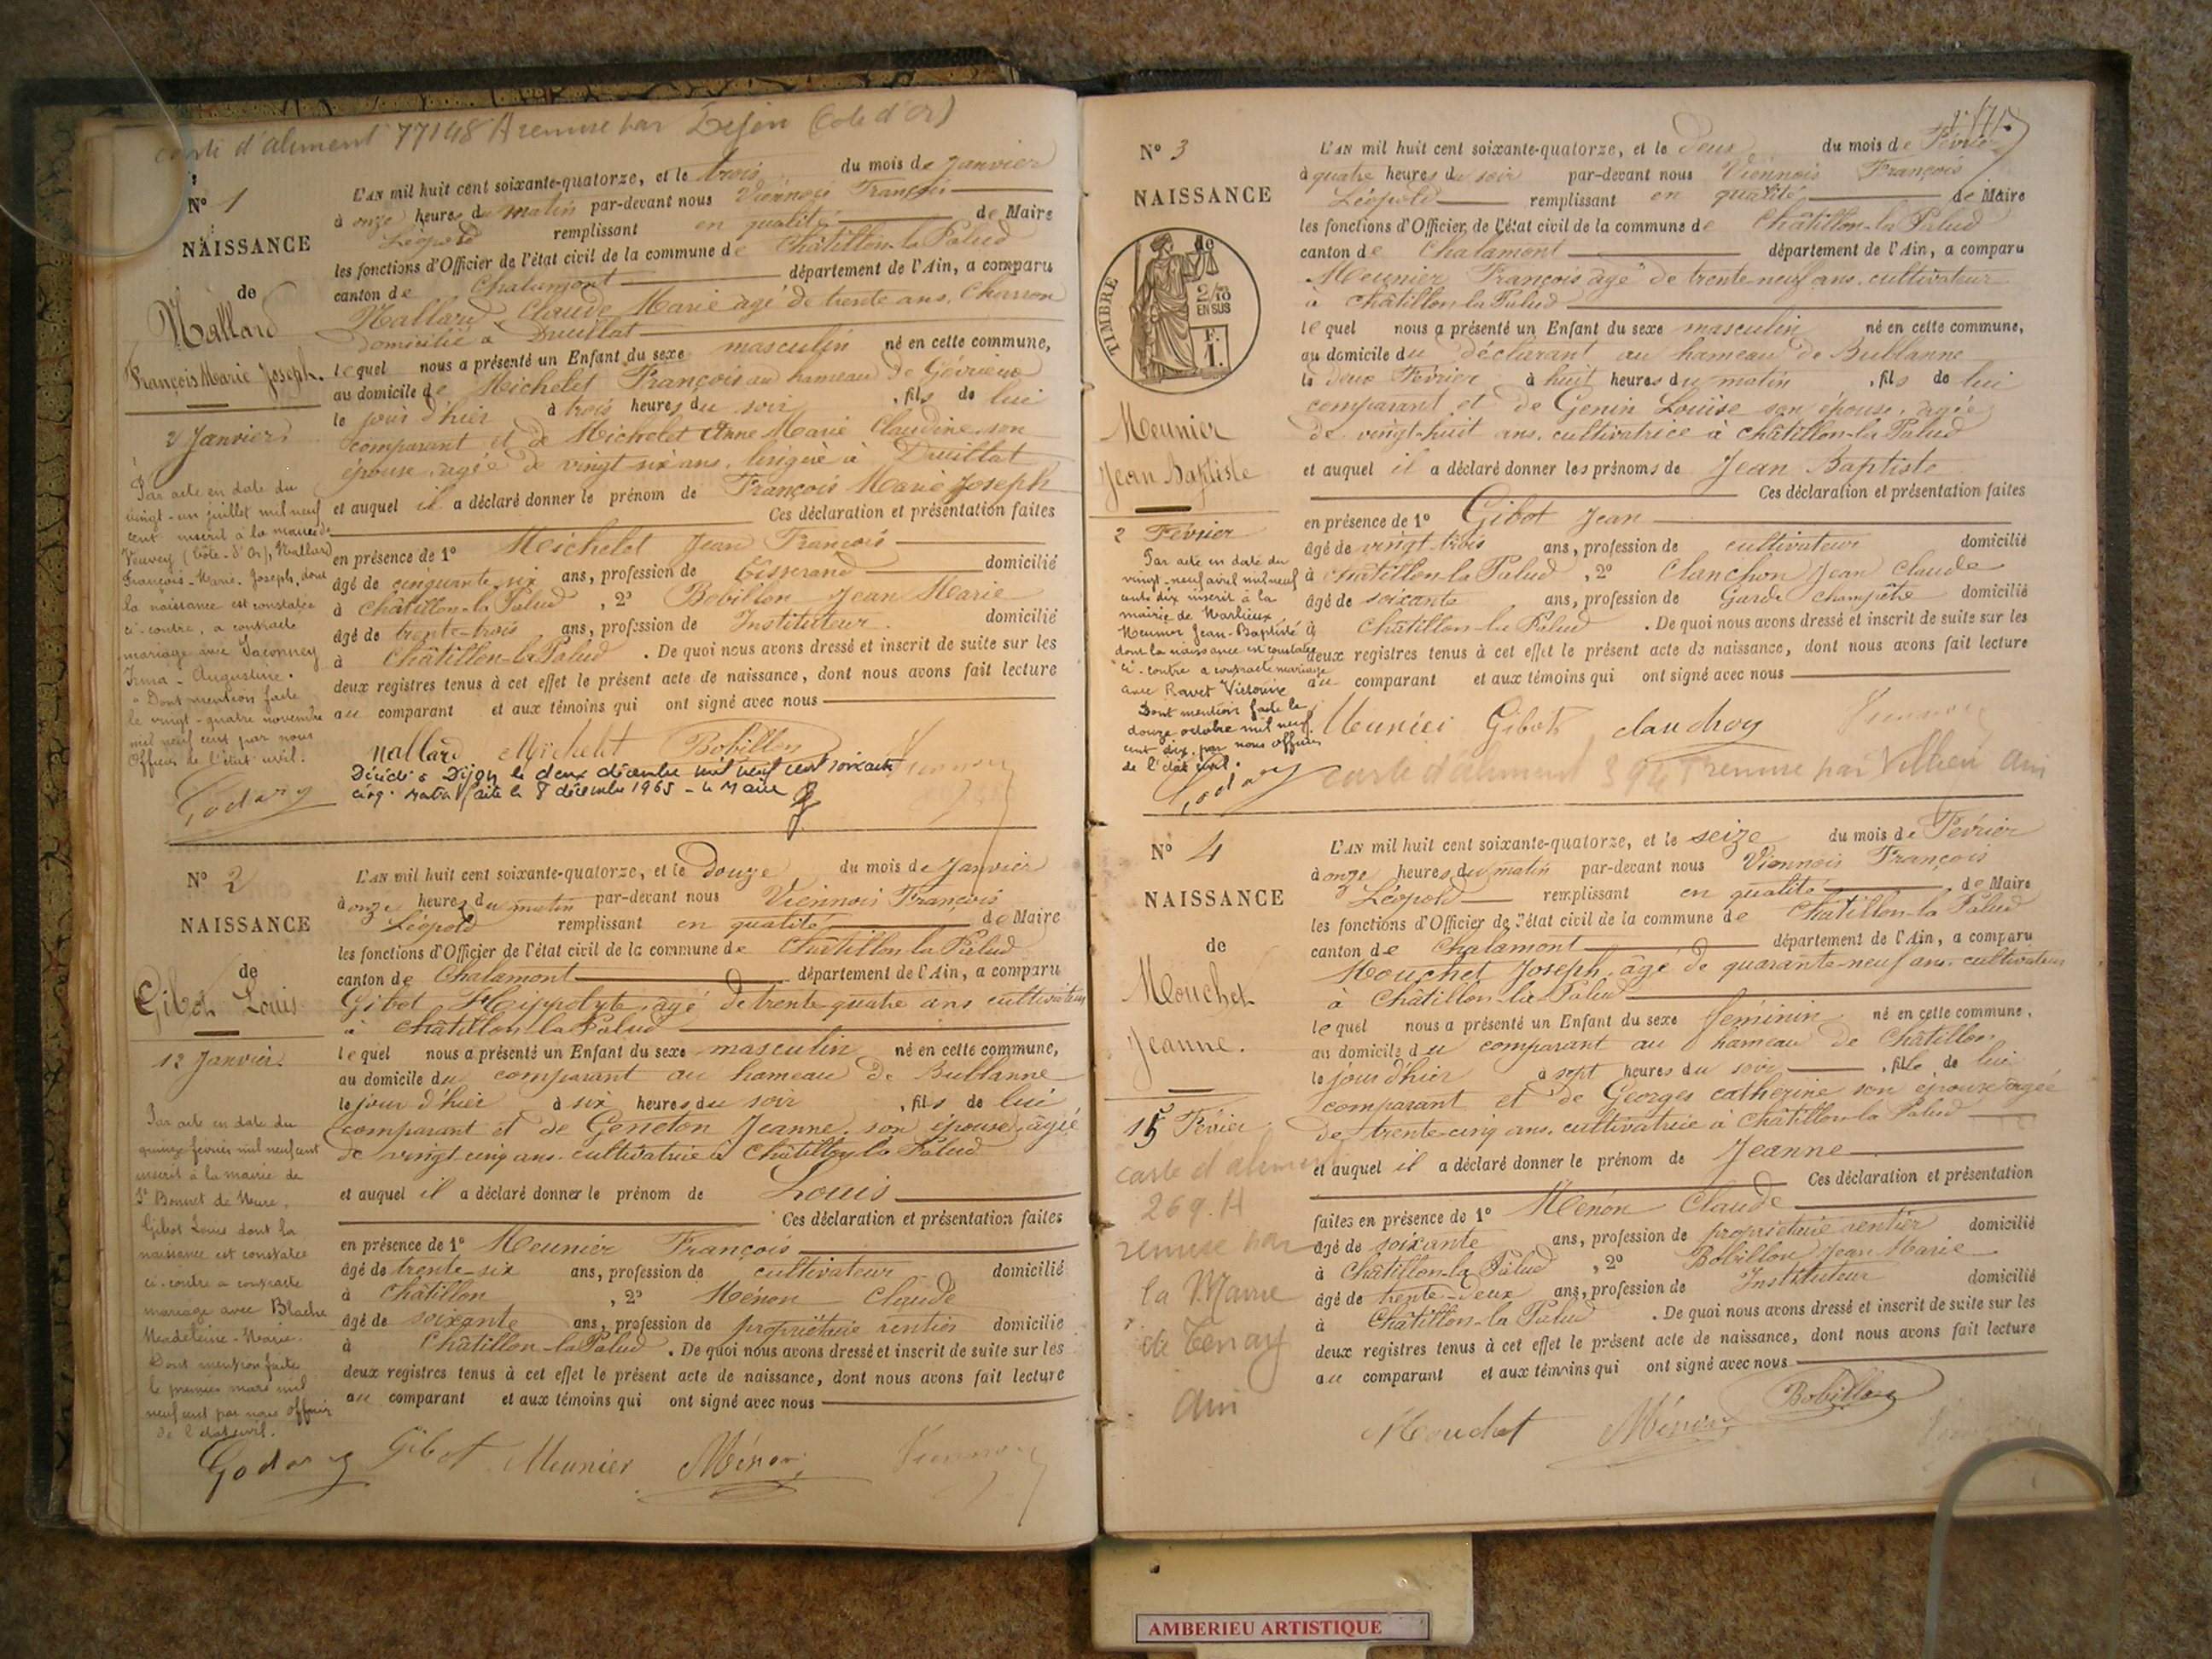 carte d'aliment 77148 A remise par Dijon (Cote d'Or)
N° 1
NAISSANCE
de
Mallard
François Marie Joseph.
2 Janvier
Par acte en date du
vingt-un juillet mil neuf
cent inscrit à la mairie de
Veuvey (Côte-d'Or), Mallard
François-Marie-Joseph, dont
la naissance est constatée
ci-contre, a contracté
mariage avec Jaconney
Irma-Augustine.
Dont mention faite
le vingt-quatre novembre
mil neuf cent par nous
Officier de l'état civil.
L'AN mil huit cent soixante-quatorze, et le trois du mois de Janvier
à onze heures du matin par-devant nous Viennois François
Léopold remplissant en qualité de Maire
les fonctions d'Officier de l'état civil de la commune de Châtillon-la-Palud
canton de Chalamont département de l'Ain, a comparu
Mallard Claude Marie âgé de trente ans, Charron
domicilié à Druillat
lequel nous a présenté un Enfant du sexe masculin né en cette commune,
au domicile de Michelet François au hameau de Gévrieux
le jour d'hier à trois heures du soir, fils de lui
comparant et de Michelet Anne Marie Claudine son
épouse, âgée de vingt six ans, lingère à Druillat
et auquel il a déclaré donner le prénom de François Marie Joseph
Ces déclaration et présentation faites
en présence de 1° Michelet Jean François
âgé de cinquante-six ans, profession de tisserand domicilié
à Châtillon-la-Palud, 2° Bobillon Jean Marie
âgé de trente-trois ans, profession de Instituteur. domicilié
à Châtillon-la-Palud. De quoi nous avons dressé et inscrit de suite sur les
deux registres tenus à cet effet le présent acte de naissance, dont nous avons fait lecture
au comparant et aux témoins qui ont signé avec nous
Mallard Michelet Bobillon
Décédé à Dijon le deux décembre mil neuf cent soixante
cinq. Mention faite le 8 décembre 1965 - Le Maire
Godard
N° 2
NAISSANCE
de
Gibot Louis
12 Janvier
Par acte en date du
quinze février mil neuf cent
inscrit à la mairie de
St Bonnet de Mure,
Gibot Louis dont la
naissance est constatée
ci-contre a contracté
mariage avec Blache
Madeleine-Marie.
Dont mention faite
le premier mars mil
neuf cent par nous officier
de l'état civil.
Godard
L'AN mil huit cent soixante-quatorze, et le Douze du mois de Janvier
à onze heures du matin par-devant nous Viennois François
Léopold remplissant en qualité de Maire
les fonctions d'Officier de l'état civil de la commune de Châtillon-la-Palud
canton de Chalamont département de l'Ain, a comparu
Gibot Hippolyte, âgé de trente-quatre ans cultivateur
à Châtillon-la-Palud
lequel nous a présenté un Enfant du sexe masculin né en cette commune,
au domicile du comparant au hameau de Bublanne
le jour d'hier à six heures du soir, fils de lui
comparant et de Geneton Jeanne, son épouse, âgée
de vingt cinq ans, cultivatrice à Châtillon-la-Palud
et auquel il a déclaré donner le prénom de Louis
Ces déclaration et présentation faites
en présence de 1° Meunier François
âgé de trente-six ans, profession de cultivateur domicilié
à Châtillon, 2° Ménon Claude
âgé de soixante ans, profession de propriétaire rentier domicilié
à Châtillon-la-Palud. De quoi nous avons dressé et inscrit de suite sur les
deux registres tenus à cet effet le présent acte de naissance, dont nous avons fait lecture
au comparant et aux témoins qui ont signé avec nous
Gibot Meunier Ménon
N° 3
NAISSANCE
de
TIMBRE
2/10
EN SUS
F.
1.
Meunier
Jean Baptiste
2 Février
Par acte en date du
vingt-neuf avril mil neuf
cent dix inscrit à la
mairie de Marlieux
Meunier Jean-Baptiste
dont la naissance est constatée
ci-contre a contracté mariage
avec Ravet Victorine
Dont mention faite le
douze octobre mil neuf
cent dix, par nous officier
de l'état civil.
Godard
L'AN mil huit cent soixante-quatorze, et le deux du mois de Février
à quatre heures du soir par-devant nous Viennois François
Léopold remplissant en qualité de Maire
les fonctions d'Officier de l'état civil de la commune de Châtillon-la-Palud
canton de Chalamont département de l'Ain, a comparu
Meunier François âgé de trente neuf ans, cultivateur
à Châtillon-la-Palud
lequel nous a présenté un Enfant du sexe masculin né en cette commune,
au domicile du déclarant au hameau de Bublanne
le deux Février à huit heures du matin, fils de lui
comparant et de Genin Louise son épouse, âgée
de vingt-huit ans, cultivatrice à Châtillon-la-Palud
et auquel il a déclaré donner les prénoms de Jean Baptiste
Ces déclaration et présentation faites
en présence de 1° Gibot Jean
âgé de vingt-trois ans, profession de cultivateur domicilié
à Châtillon-la-Palud, 2° Clanchon Jean Claude
âgé de soixante ans, profession de Garde champêtre domicilié
à Châtillon-la-Palud. De quoi nous avons dressé et inscrit de suite sur les
deux registres tenus à cet effet le présent acte de naissance, dont nous avons fait lecture
au comparant et aux témoins qui ont signé avec nous
Meunier Gibot
carte d'aliment remise par Ain
N° 4
NAISSANCE
de
Mouchet
Jeanne.
15 Février
carte d'aliment
269. H
remise par
la Mairie
de Tenay
Ain
L'AN mil huit cent soixante-quatorze, et le seize du mois de Février
à onze heures du matin par-devant nous Viennois François
Léopold remplissant en qualité de Maire
les fonctions d'Officier de l'état civil de la commune de Châtillon-la-Palud
canton de Chalamont département de l'Ain, a comparu
Mouchet Joseph, âgé de quarante-neuf ans, cultivateur
à Châtillon-la-Palud
lequel nous a présenté un Enfant du sexe féminin né en cette commune,
au domicile du comparant au hameau de Châtillon
le jour d'hier à sept heures du soir, fille de lui
comparant et de Georges Catherine son épouse âgée
de trente-cinq ans, cultivatrice à Châtillon-la-Palud
et auquel il a déclaré donner le prénom de Jeanne
Ces déclaration et présentation
faites en présence de 1° Ménon Claude
âgé de soixante ans, profession de propriétaire rentier domicilié
à Châtillon-la-Palud, 2° Bobillon Jean Marie
âgé de trente-deux ans, profession de Instituteur domicilié
à Châtillon-la-Palud. De quoi nous avons dressé et inscrit de suite sur les
deux registres tenus à cet effet le présent acte de naissance, dont nous avons fait lecture
au comparant et aux témoins qui ont signé avec nous
Mouchet Ménon Bobillon
AMBERIEU ARTISTIQUE